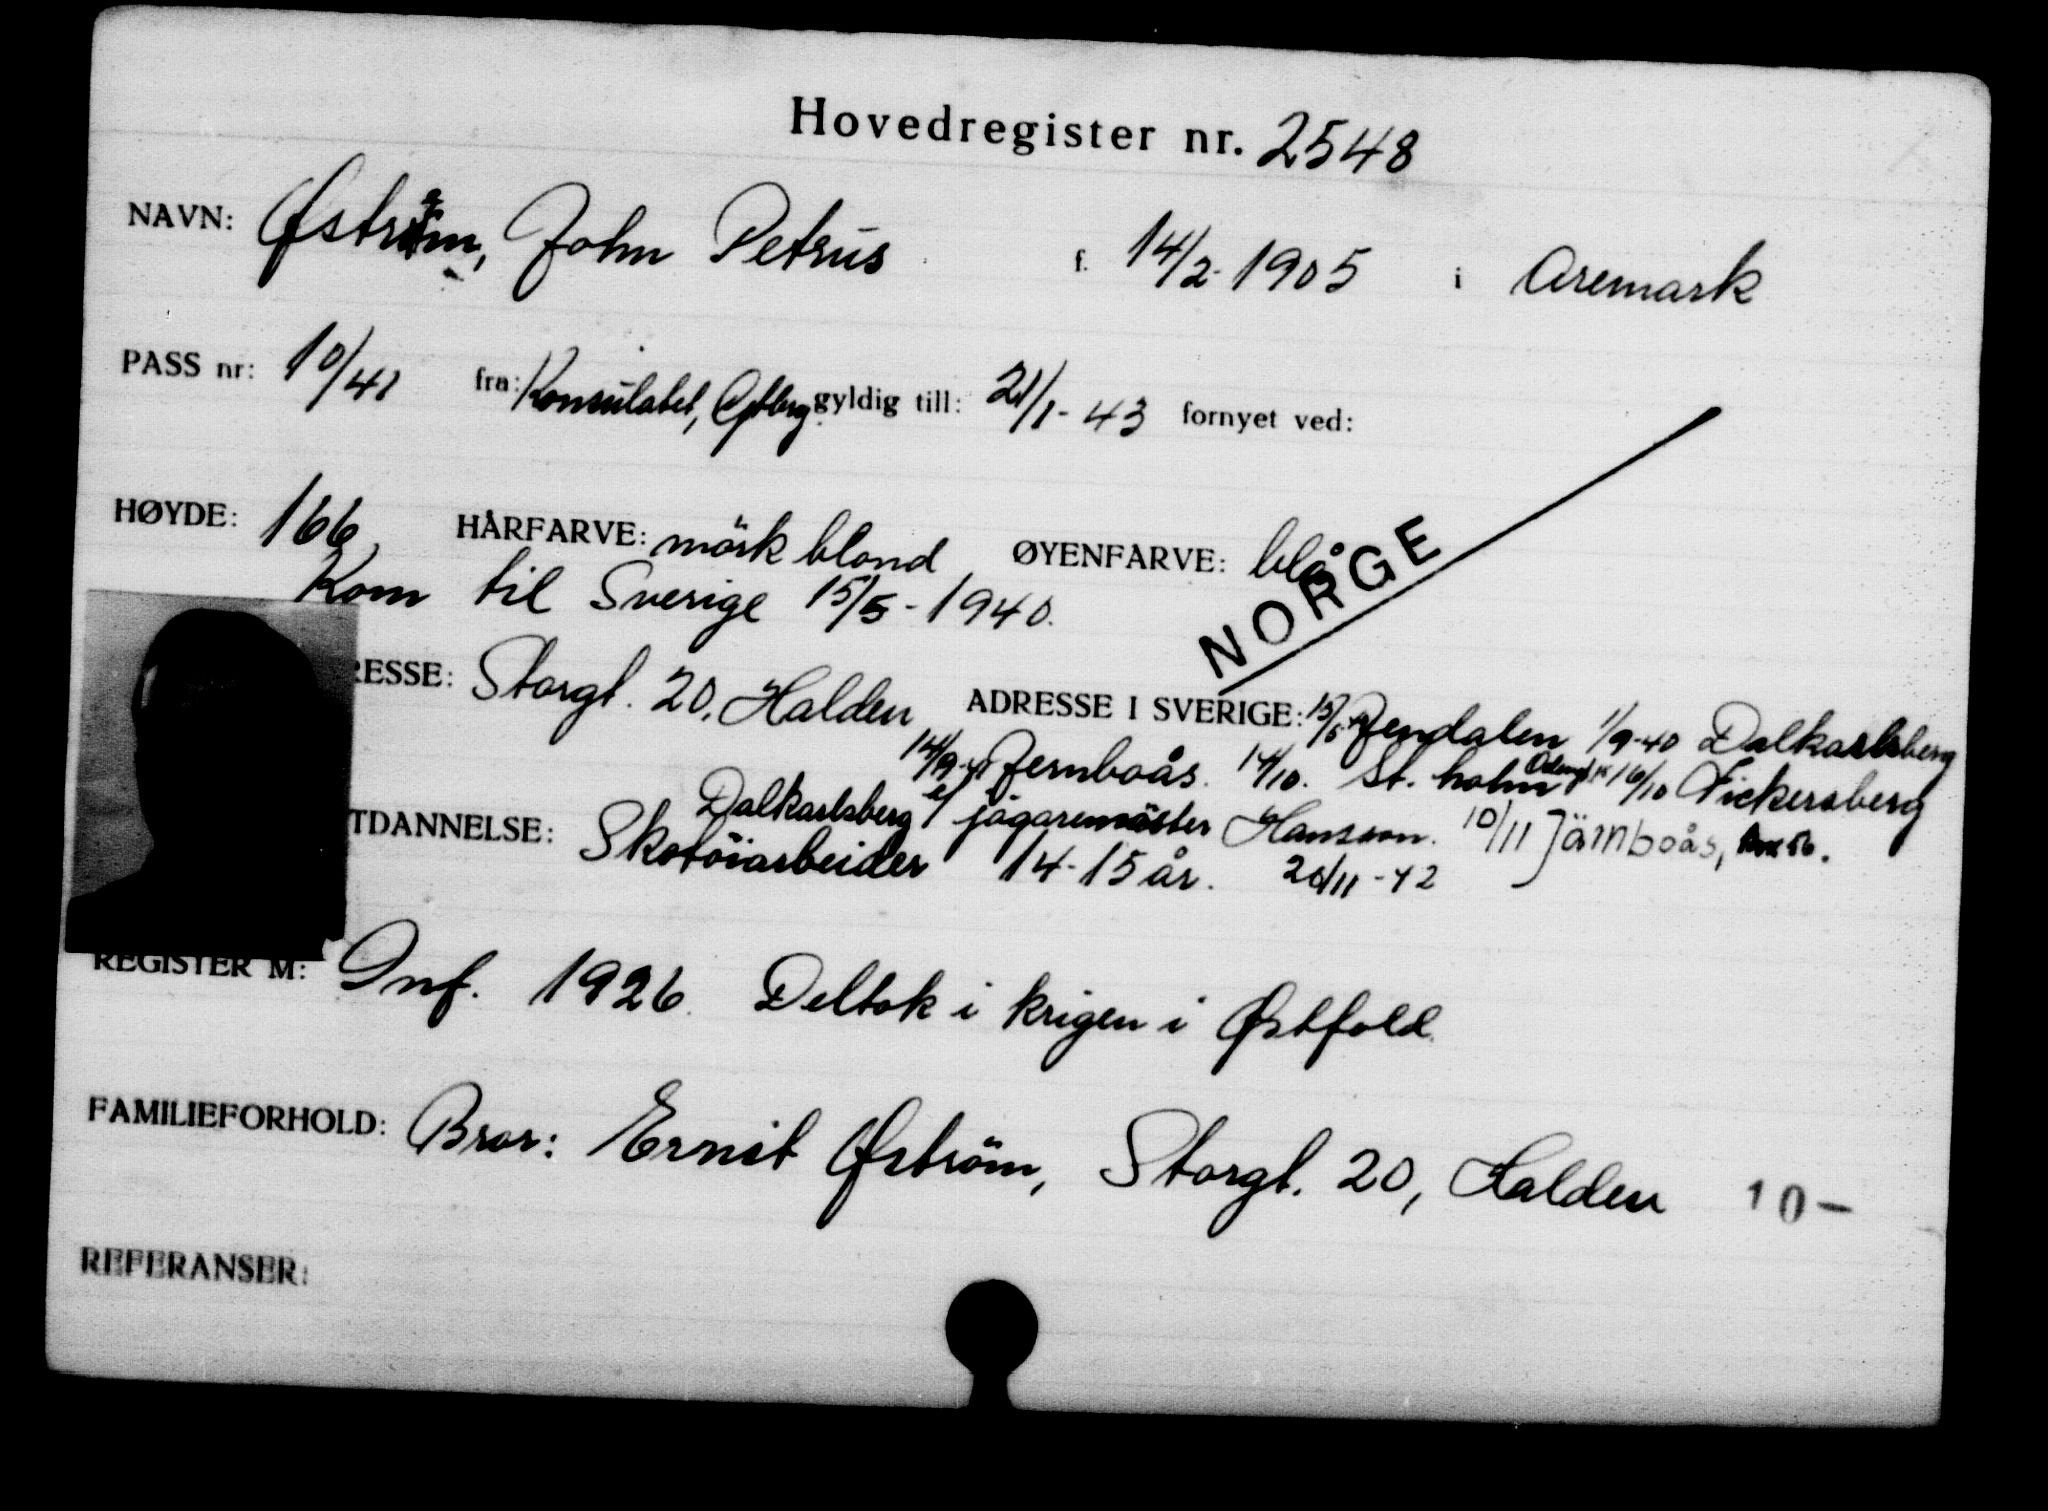 Hovedregister nr. 2548
NAVN: Øström, John Petrus f. 14/2-1905 i Aremark
PASS nr: 10/41 fra: Konsulatet, Gtbrg gyldig till: 21/1-43 fornyet ved:
HØYDE: 166 HÅRFARVE: mörk blond ØYENFARVE: blå
NORGE
Kom til Sverige 15/5-1940.
RESSE: Storgt. 20, Halden ADRESSE I SVERIGE: 15/5 Dalkarlsberg 1/9-40
14/9-41 Jernboås. 14/10. St. holm 16/10 Vickersberg
Dalkarlsberg jägaremäster Hansson. 10/11 Järnboås,
TDANNELSE: Skotöiarbeider 14-15 år. 20/11-42
REGISTER M: Inf. 1926. Deltok i krigen i Østfold.
FAMILIEFORHOLD: Bror: Ernst Øström, Storgt. 20, Halden 10-
REFERANSER: